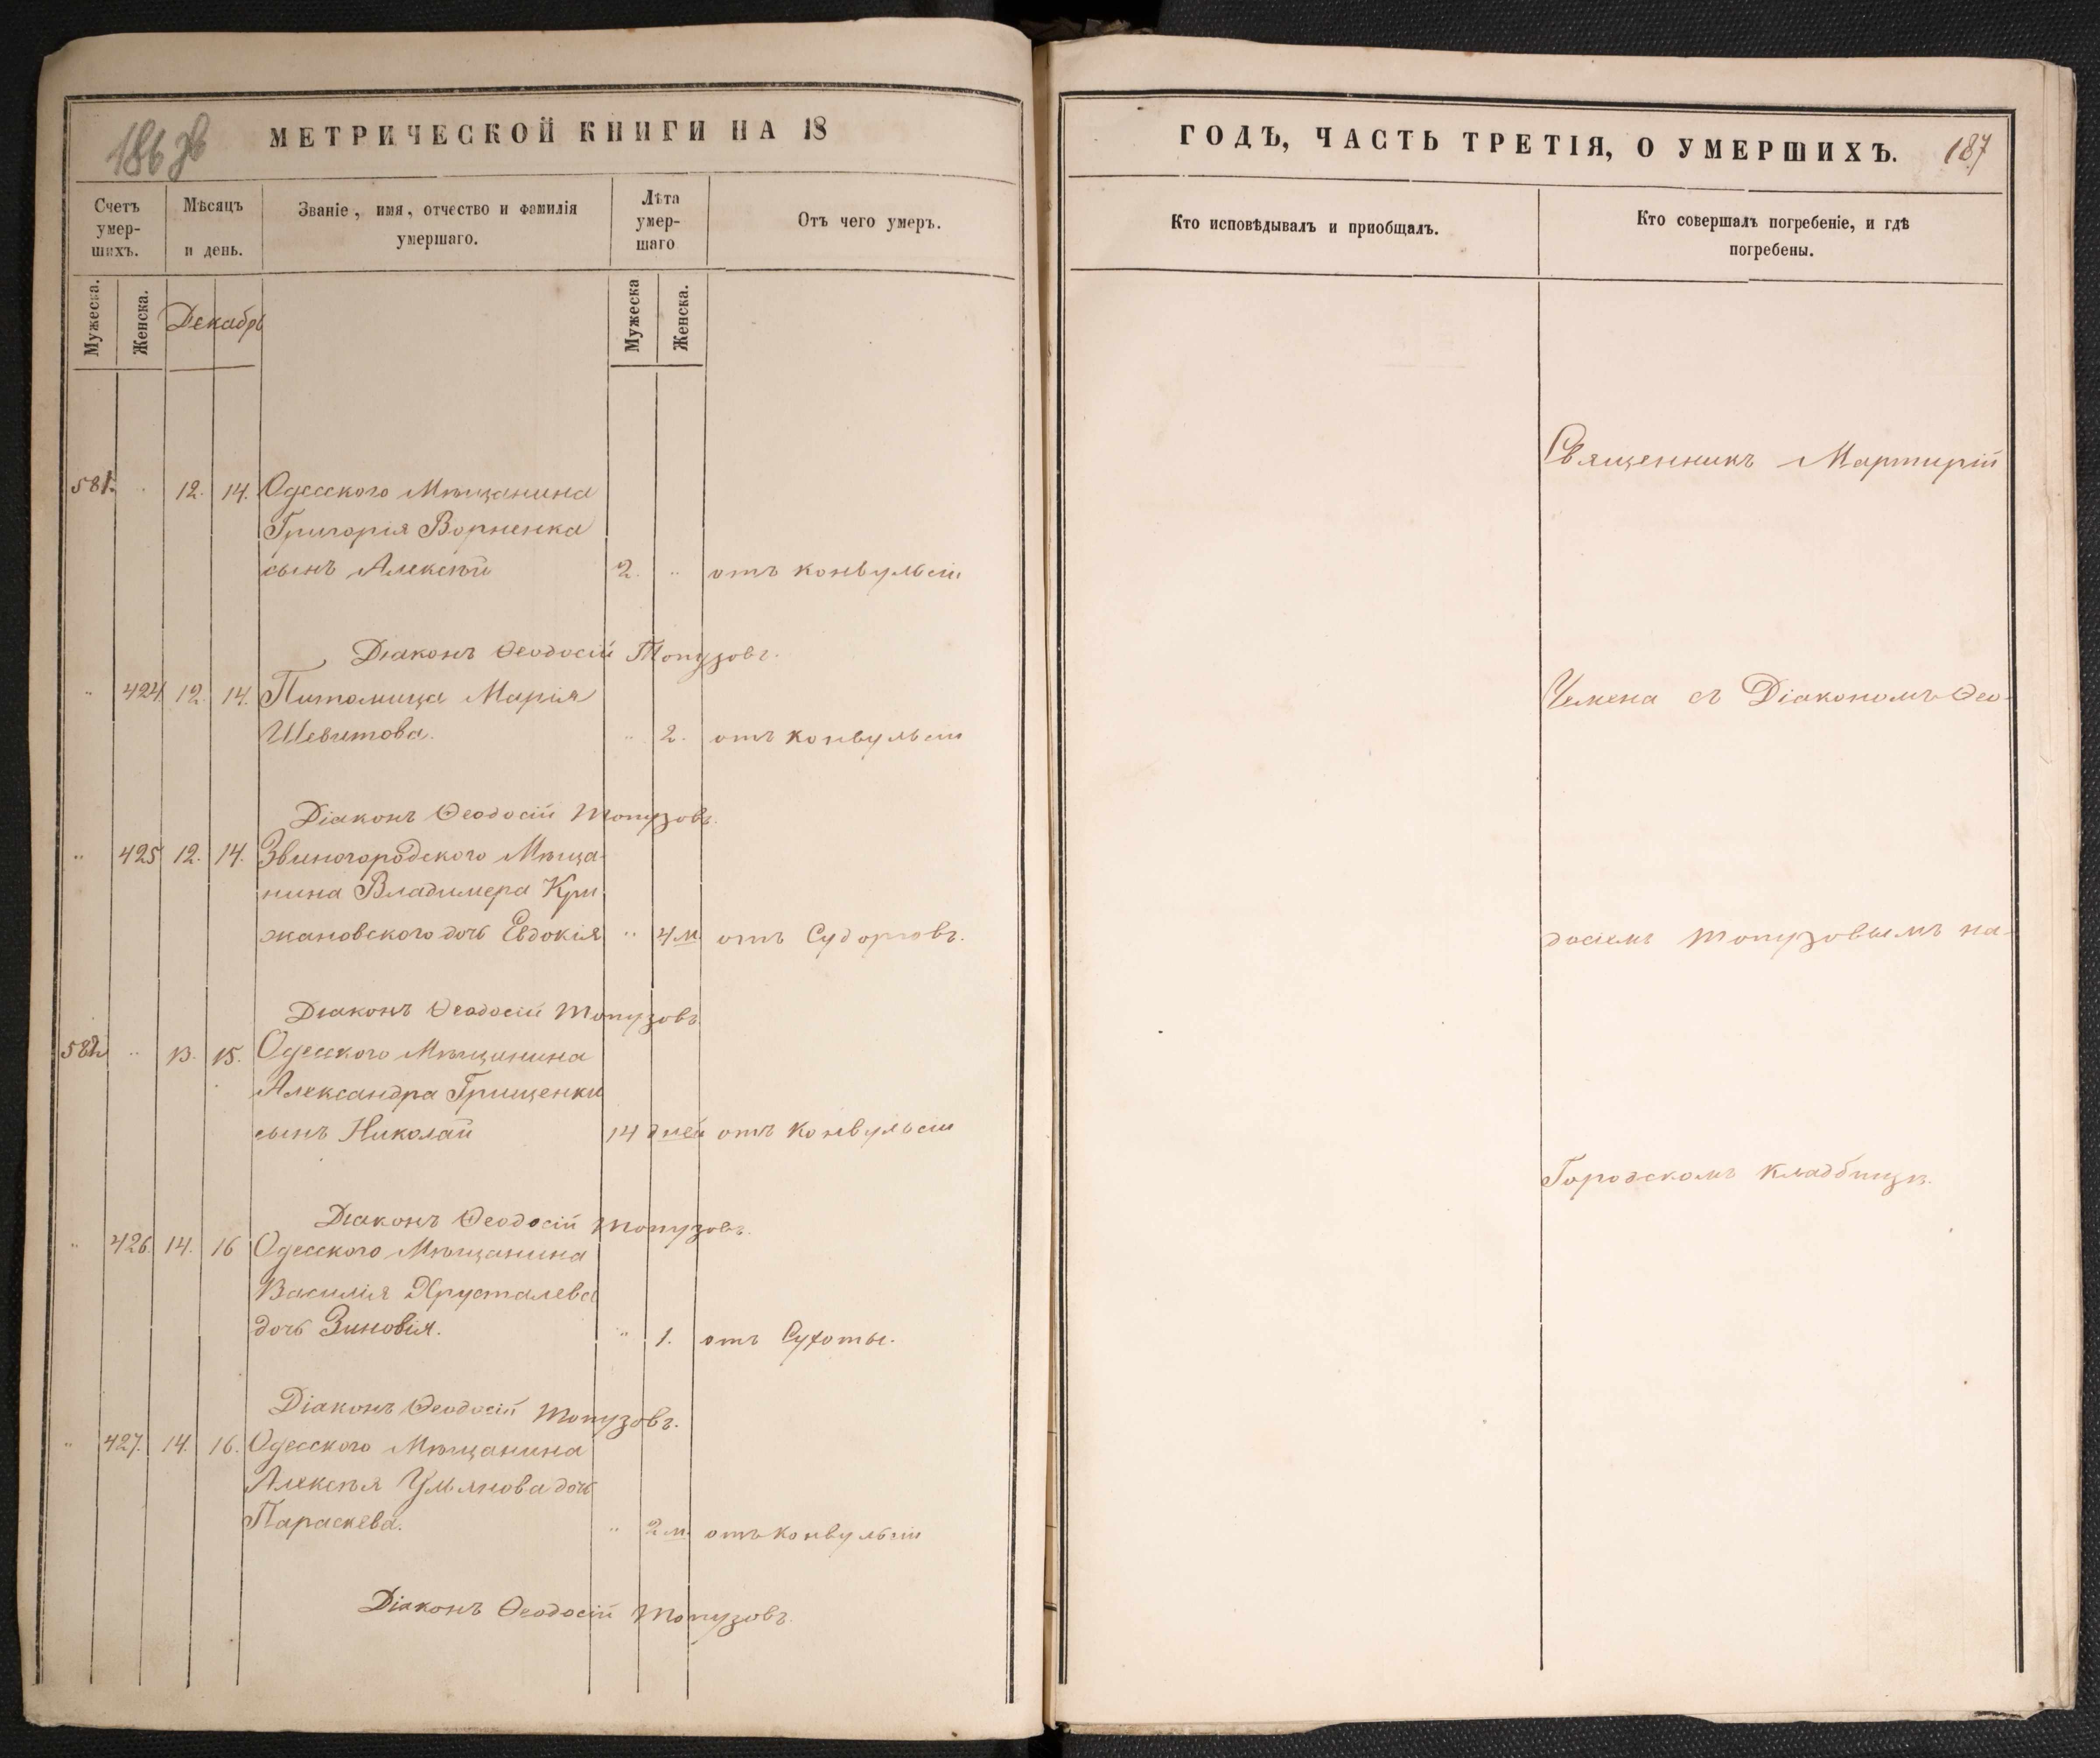 186 зв
МЕТРИЧЕСКОЙ КНИГИ НА 18
Счетъ умер-шихъ.
Мѣсяцъ и день.
Званіе, имя, отчество и фамилія умершаго.
Лѣта умер-шаго
Отъ чего умеръ.
Мужеска. Женска. Декабрь Мужеска Женска.
581. " 12. 14. Одесского Мѣщанина
Григорія Ворненка
сынъ Алексѣй 2. " отъ конвульсіи
Діаконъ Ѳеодосій Топузовъ.
" 424 12. 14. Питомица Марія
Шевитова. " 2. отъ конвульсіи
Діаконъ Ѳеодосій Топузовъ.
" 425 12. 14. Звиногородского Мѣща-
нина Владимера Кри
жановского дочь Евдокія " 4 м отъ Судорговъ.
Діаконъ Ѳеодосій Топузовъ
582 " 13. 15. Одесского Мѣщанина
Александра Грищенки
сынъ Николай 14 дней отъ Конвульсіи
Діаконъ Ѳеодосій Топузовъ.
" 426. 14. 16 Одесского Мѣщанина
Василія Хрусталева
дочь Зиновія. " 1. отъ Сухоты.
Діаконъ Ѳеодосій Топузовъ.
" 427. 14. 16. Одесского Мѣщанина
Алексѣя дочь
Параскева. " 2 м. отъ конвульсіи
Діаконъ Ѳеодосій Топузовъ.
ГОДЪ, ЧАСТЬ ТРЕТІЯ, О УМЕРШИХЪ. 187
Кто исповѣдывалъ и пріобщалъ.
Кто совершалъ погребеніе, и гдѣ
погребены.
Священникъ Мартирій
Чемена съ Діакономъ Ѳео-
досіемъ Топузовымъ на-
Городскомъ Кладбищѣ.